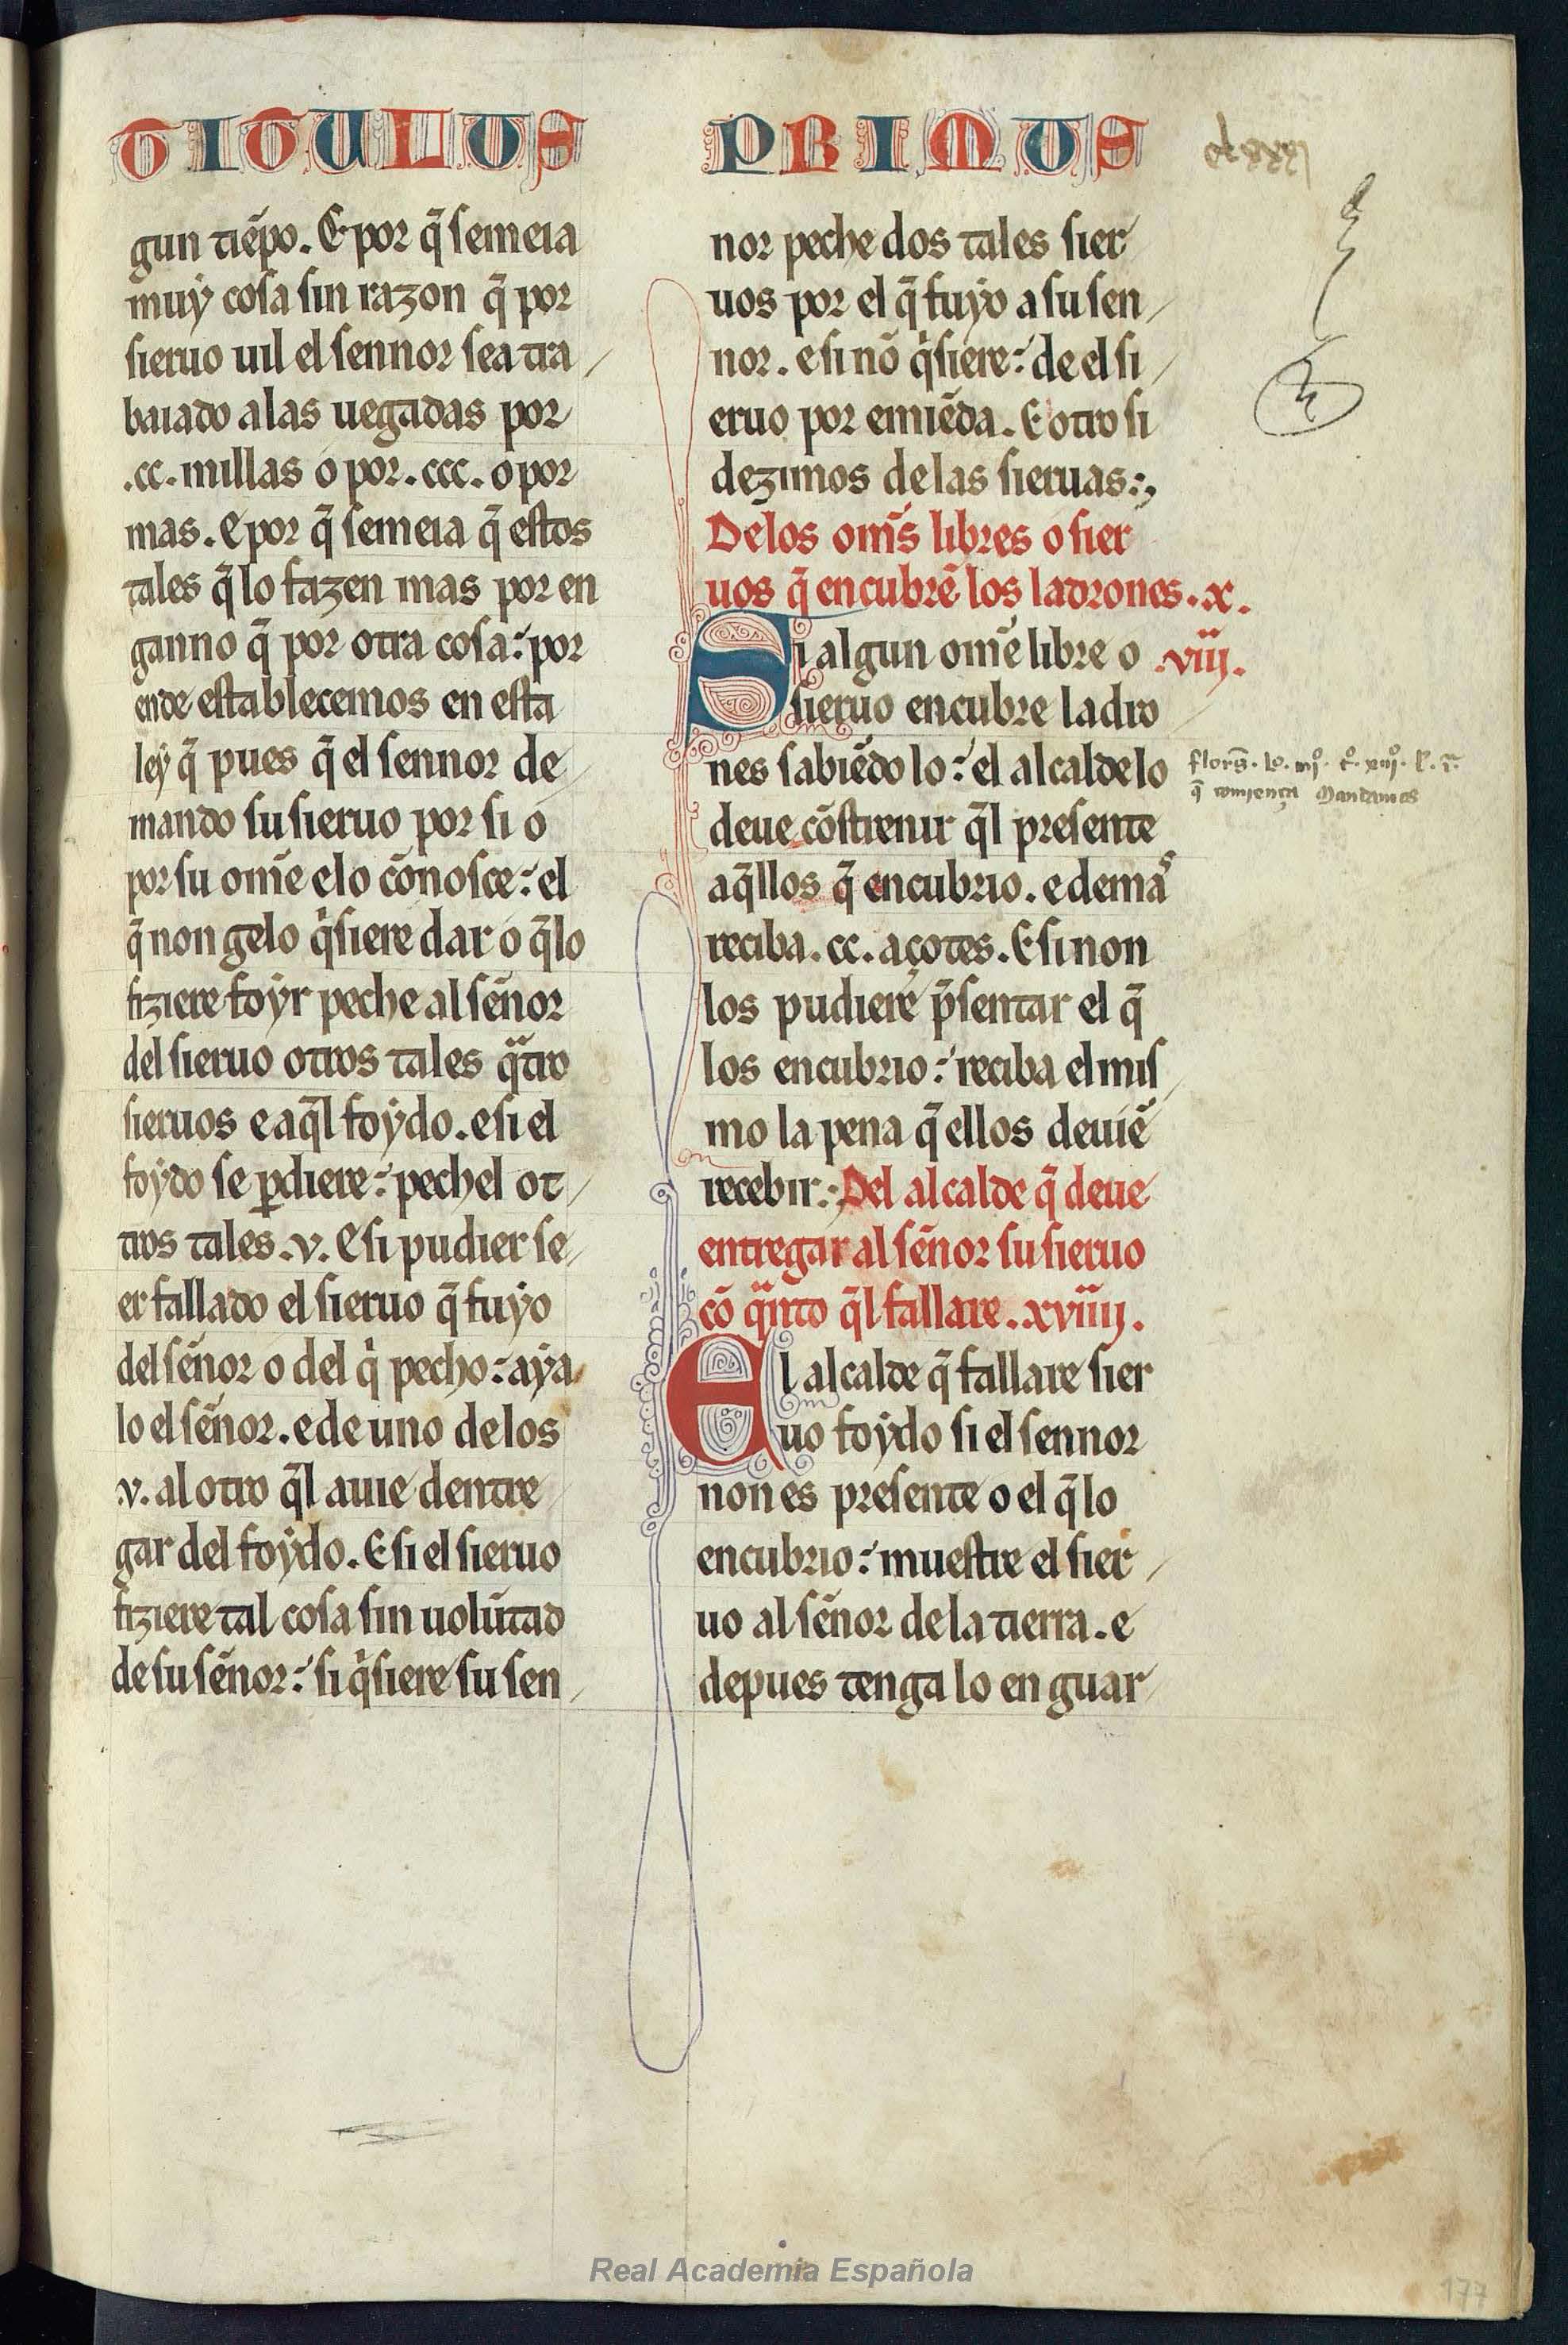 TITULUS
gun tiẽpo. E por q̃ semeia
muy cosa sin razon q̃ por
sieruo uil el sennor sea tra
baiado a las uegadas por
.cc. millas o por .ccc. o por
mas. E por q̃ semeia q̃ estos
tales q̃ lo fazen mas por en
ganno q̃ por otra cosa: por
ende establecemos en esta
ley q̃ pues q̃ el sennor de
mando su sieruo por si o
por su om̃e e lo cõnosce: el
q̃ non gelo q̇siere dar o q̃ lo
fiziere foyr peche al sẽnor
del sieruo otros tales q̃tro
sieruos e aq̃l foydo. e si el
foydo se ꝑdiere: pechel ot
tros tales .v. E si pudier se
er fallado el sieruo q̃ fuyo
del sẽnor o del q̇ pecho: aya
lo el sẽnor. e de uno de los
.v. al otro q̃l auie dentre
gar del foydo. E si el sieruo
fiziere tal cosa sin uolũtad
de su sẽnor: si q̇siere su sen
PRIMUS
nor peche dos tales sier
uos por el q̃ fuyo a su sen
nor. e si nõ q̇siere: de el si
eruo por emiẽda. E otro si
dezimos de las sieruas:
De los om̃s libres o sier
uos q̃ encubrẽ los ladrones. x.
Si algun om̃e libre o .viij.
sieruo encubre ladro
nes sabiẽdo lo: el alcalde lo
deue cõstrenir q̃l presente
aq̃llos q̃ encubrio. e demas
reciba .cc. açotes. E si non
los pudierẽ p̃sentar el q̃
los encubrio: reciba el mis
mo la pena q̃ ellos deuiẽ
recebir: Del alcalde q̃ deue
entregar al sẽnor su sieruo
cõ q̃nto q̃l fallare. xviiij.
El alcalde q̃ fallare sier
uo foydo si el sennor
non es presente o el q̃ lo
encubrio: muestre el sier
uo al sẽnor de la tierra. e
depues tenga lo en guar
q̃ comiença Mandamos
Real Academia Española
177